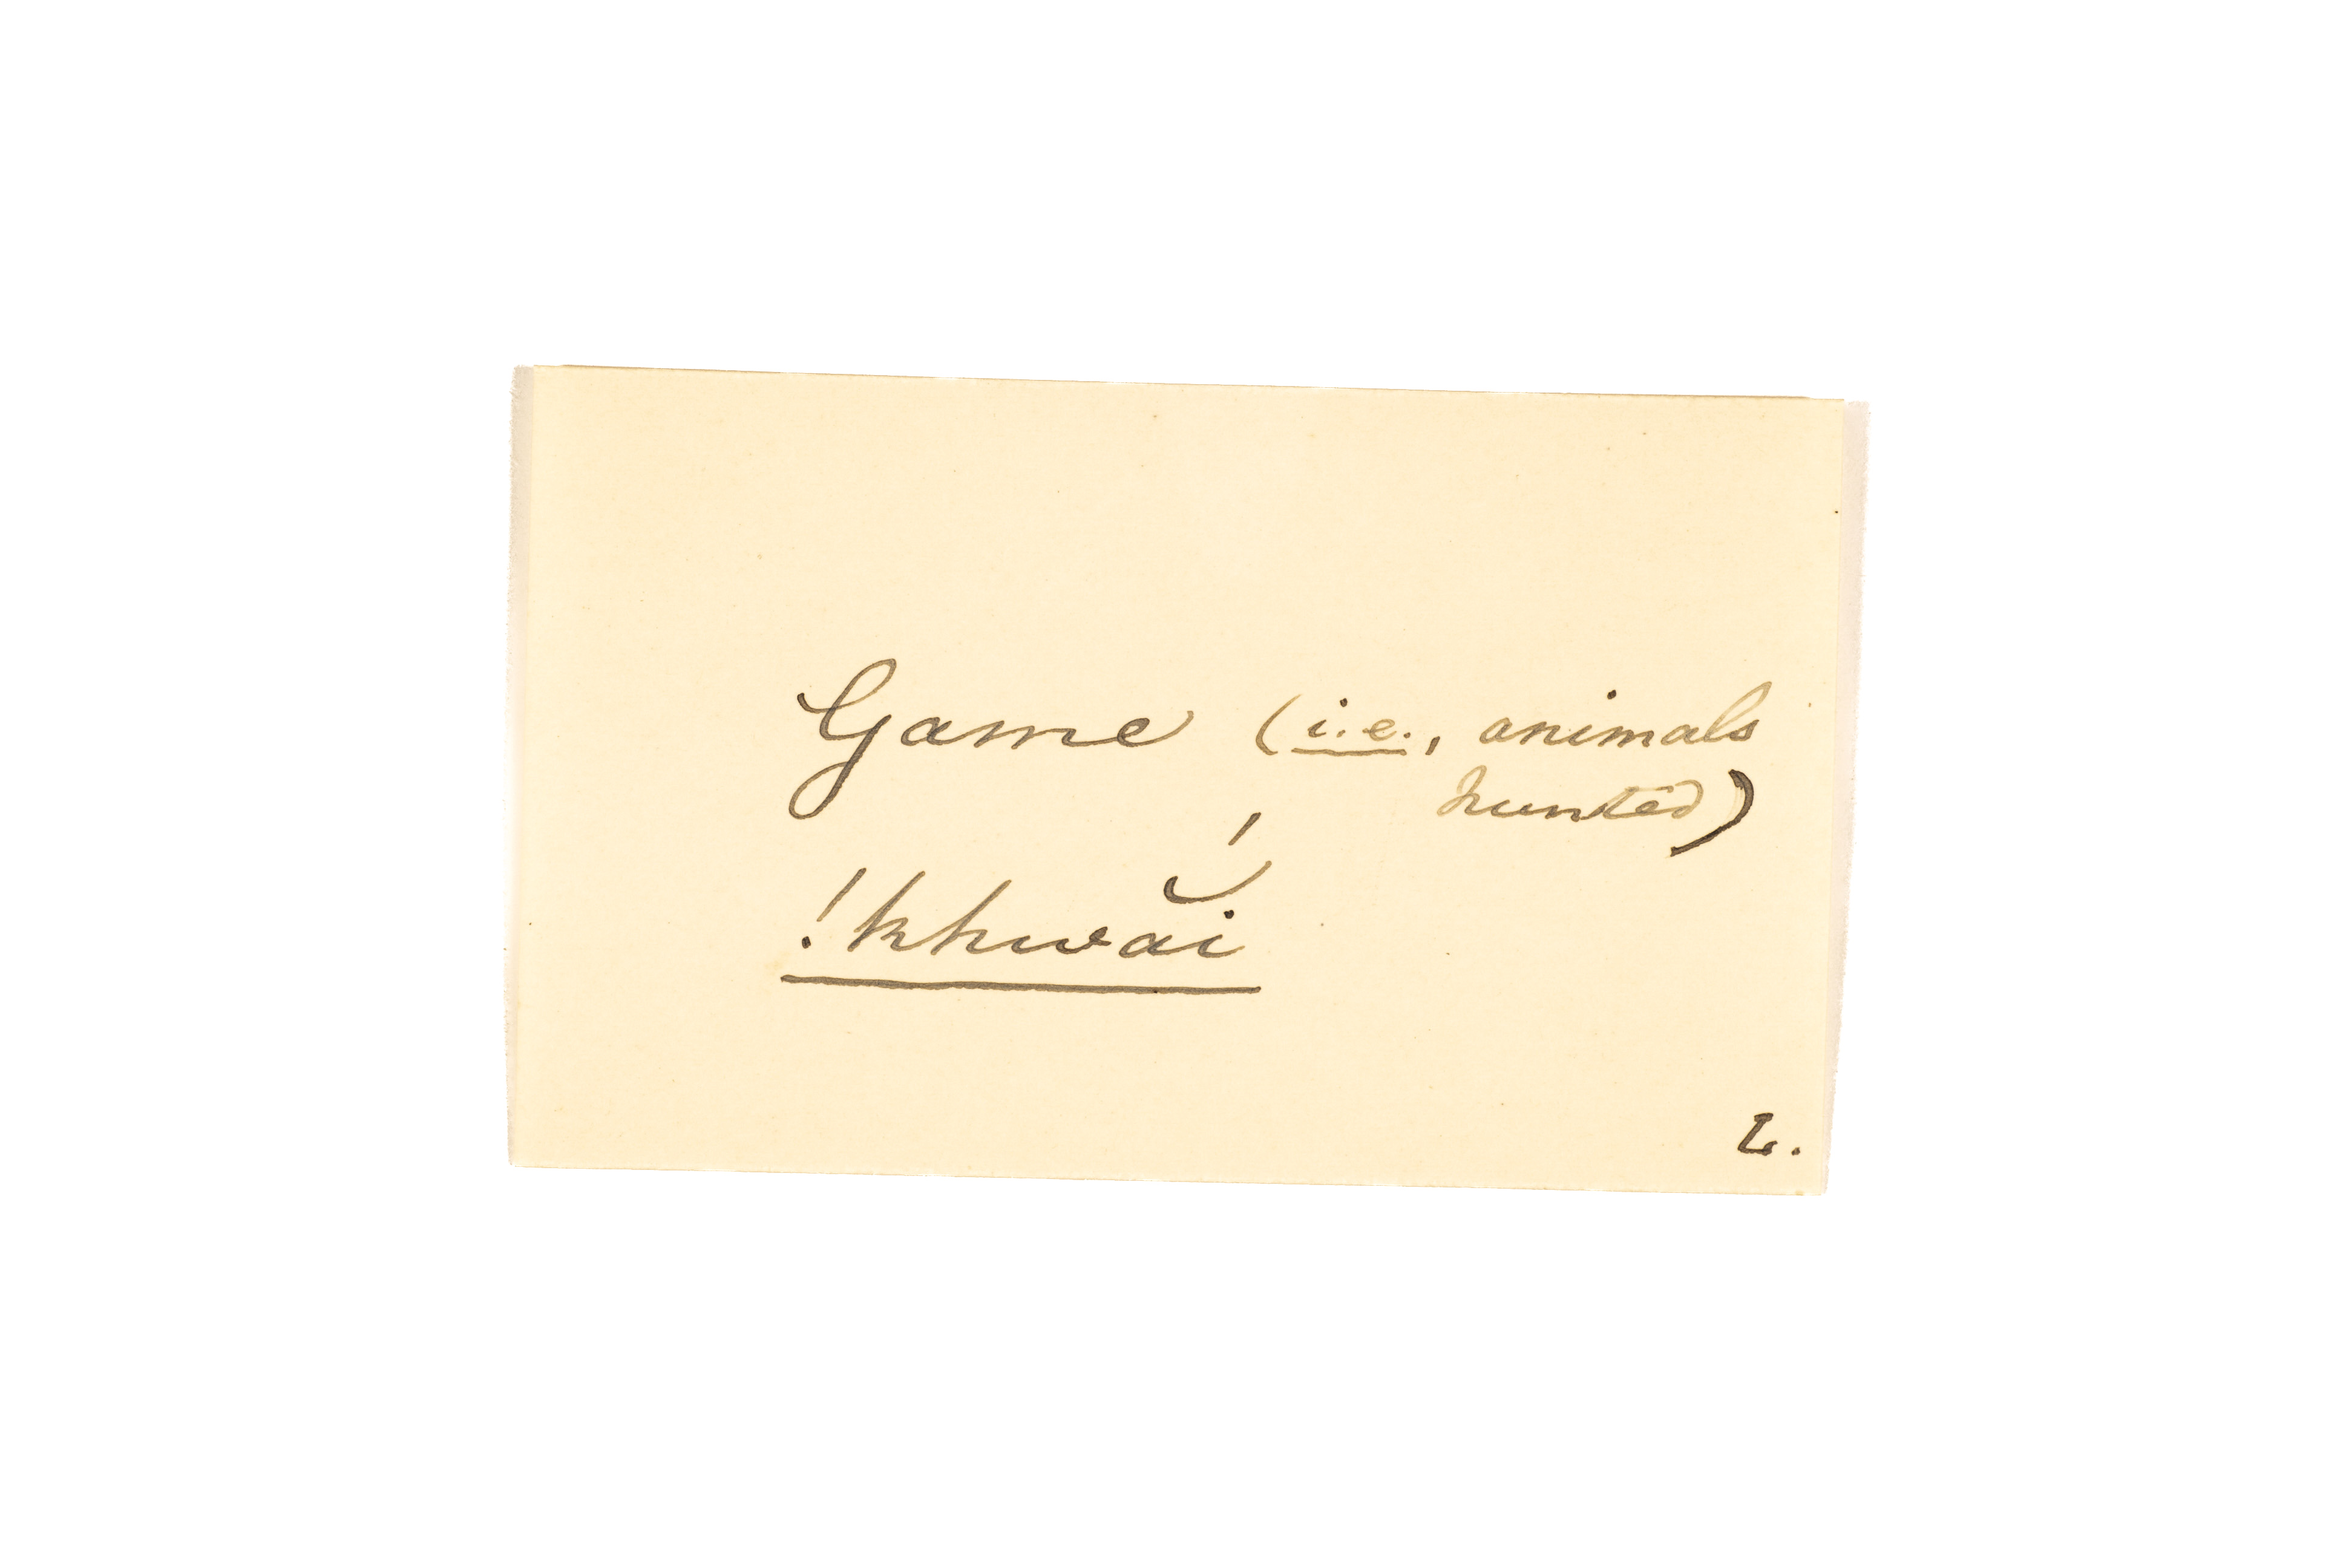 Game (i.e., animals
hunted)
!khwắi
L.